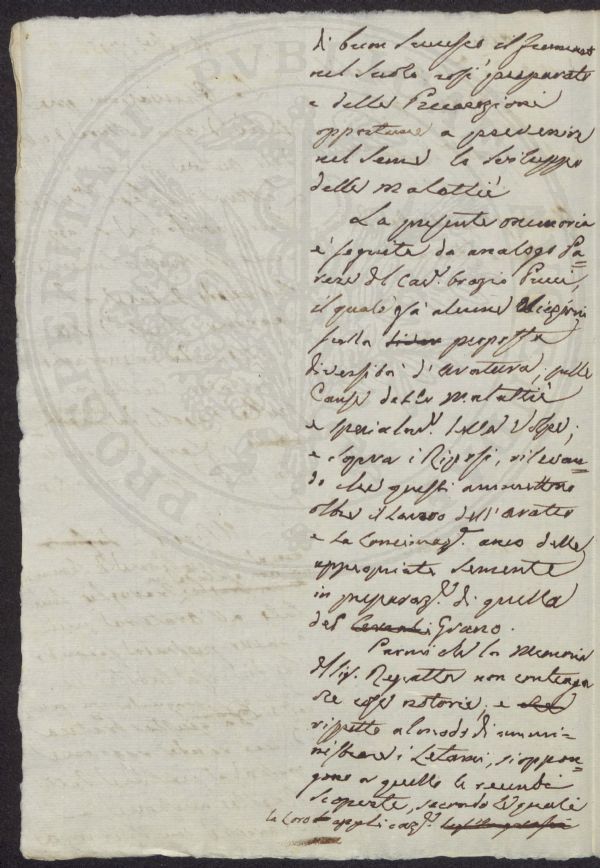 di buon successo il frumento
nel suolo così preparato
e delle Precauzioni
opportune a prevenire
nel seme lo sviluppo
delle malattie
La presente memoria
è seguita da analogo Pa=
rere del Cav.r Orazio Pucci,
il quale già alcune
sulla proposta
diversità d'aratura, sulle
Cause delle Malattie
e specialm.e della Volpe;
e sopra i Riposi, rilevan=
do che questi ammettono
oltre il lavoro dell'aratro
e la Concimaz.e anco delle
appropriate semente
in preparaz.e di quella
del Grano.
Parmi che la Memoria
del Sig. non contenga
che cose notorie, e
rispetto al modo di ammi=
nistrare i Letami, si oppon=
gono a quello le recenti
scoperte, secondo le quali
la loro applicaz.e
PROSPERITATI PVBLICAE